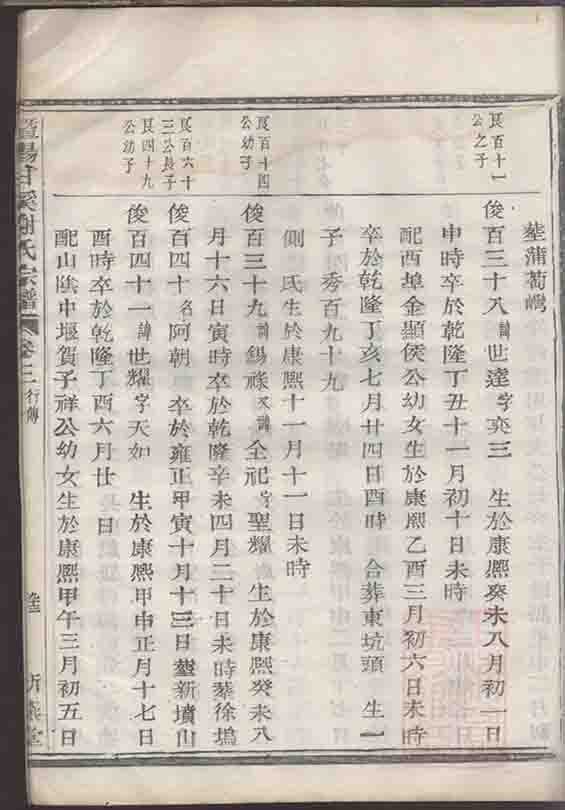 塟蒲萄嶋
艮百十一
公之子
俊百三十八諱世達字奕三 生於康熙癸未八月初一日
申時卒於乾隆丁丑十一月初十日未時
配西埠金顯侯公幼女生於康熙乙酉三月初六日未時
卒於乾隆丁亥七月廿四日酉時 合葬東坑頭 生一
子 秀百九十九
側 氏生於康熙十一月十一日未時
艮百十四
公幼子
俊百三十九諱錫祿又諱全祀字聖耀 生於康熙癸未八
月十六日寅時卒於乾隆辛未四月二十日未時葬徐塢
艮百六十
三公長子
俊百四十名阿朝 卒於雍正甲寅十月十三日塟新墳山
艮四十九
公幼子
俊百四十一諱世耀字天如 生於康熙甲申正月十七日
酉時卒於乾隆丁酉六月廿 日
配山陰中堰賀子祥公幼女生於康熙甲午三月初五日
暨陽甘溪謝氏宗譜 卷二 行傳